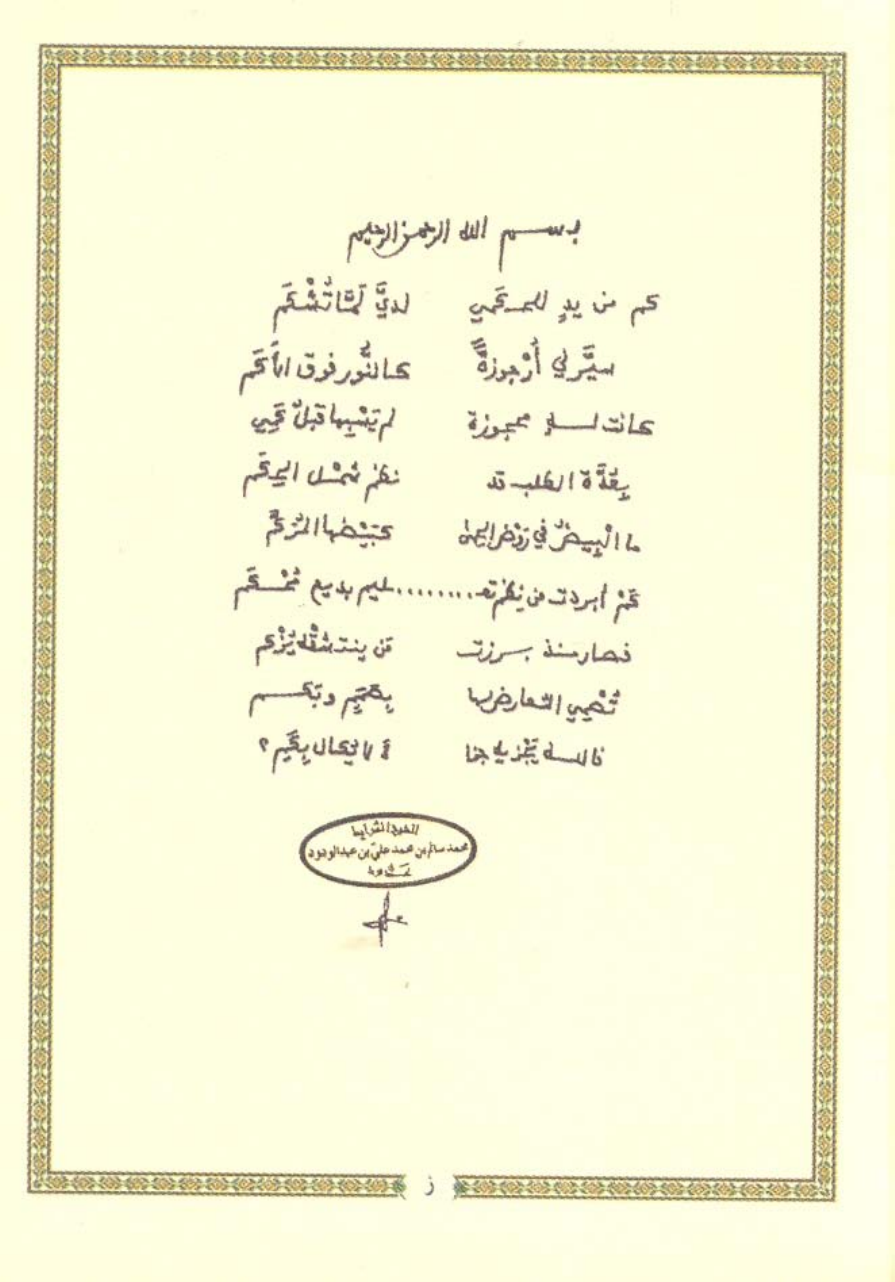 بسم الله الرحمن الرحيم
كم من يدٍ للحكمي لديَّ لمَّا تُشْكَمِ
سيَّر لي أُرْجوزةً كالنُّور فوق الأَكَمِ
كانت له محجوزة لم يَنْبِها قبلُ كَمِي
بِعُدَّة الطلب قد نظم شمل الحِكَمِ
ما الْبِيضُ في رَوْض كبَيْضها المُرَكَّمِ
كَمْ أبردت من نظم تعـ........ـليم بديع مُحْكَمِ
فصار منذ برزت مَن ينتشقْه يُزْكَمِ
تُصْمِي التعارض بها بِصَمَمٍ وبَكَمِ
فالله يَجْزِيهِ جنا ءً لا يُكال بِكَمِ؟
محمد سالم بن محمد عليّ بن عبدالودود
ز